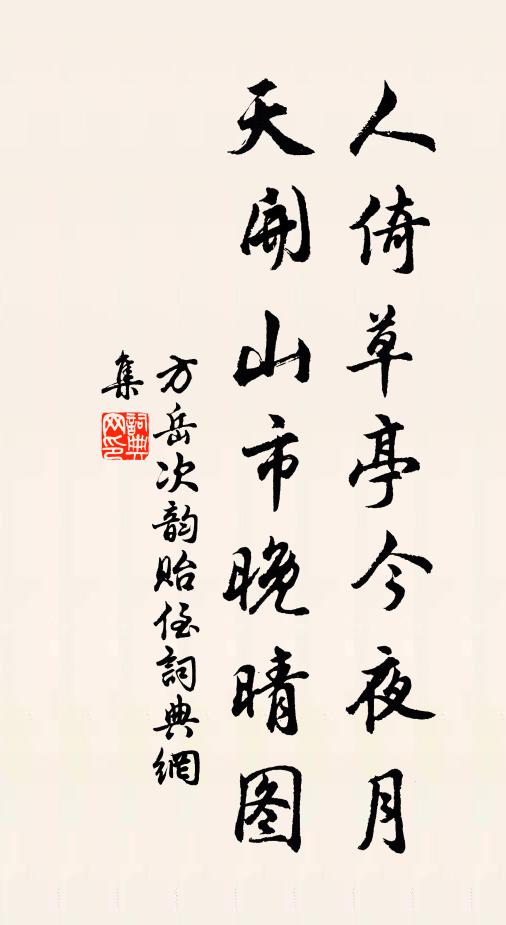 人倚草亭今夜月
天開山市晚晴图
方岳次韵贻侄詞典網
集
詞典网印